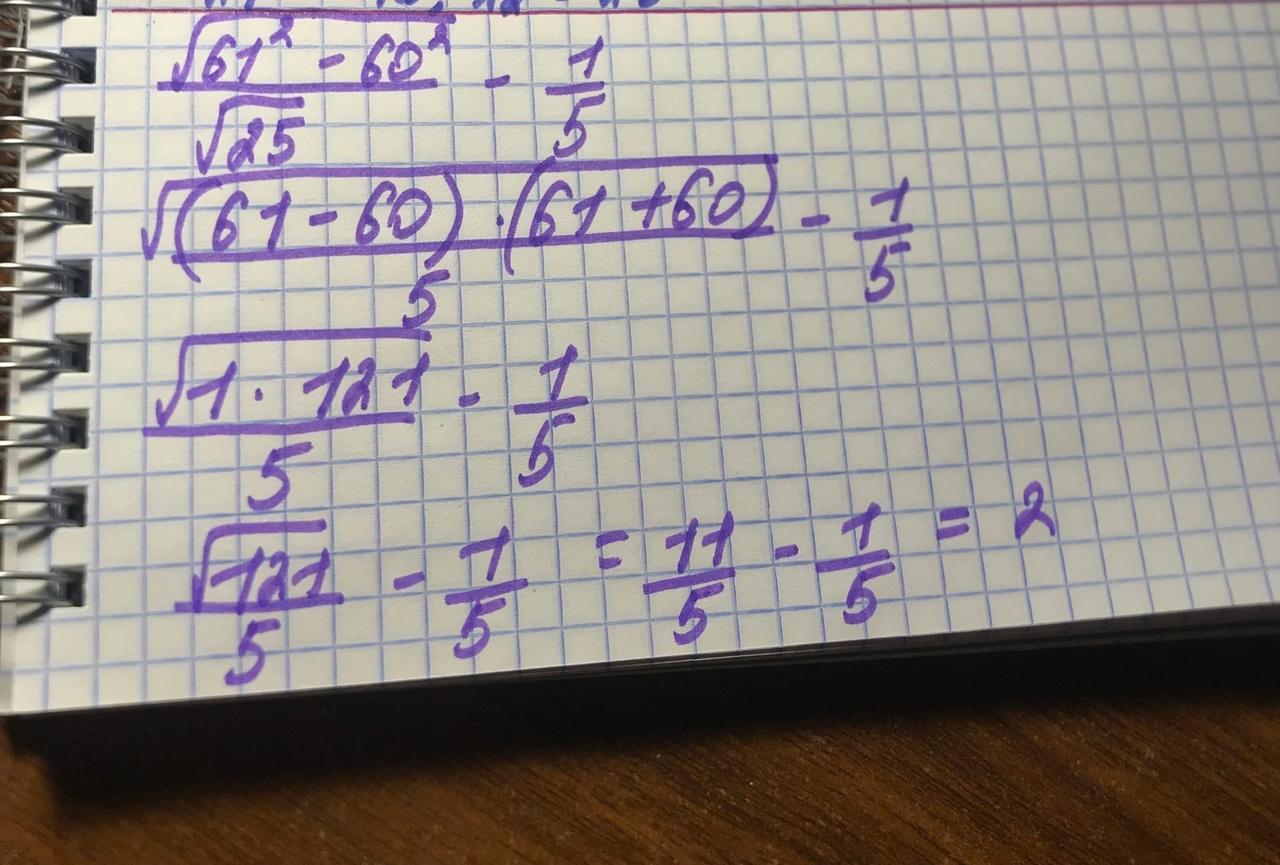 √(61² - 60²) / √25 - 1/5
√((61 - 60) · (61 + 60)) / 5 - 1/5
√(1 · 121) / 5 - 1/5
√121 / 5 - 1/5 = 11/5 - 1/5 = 2